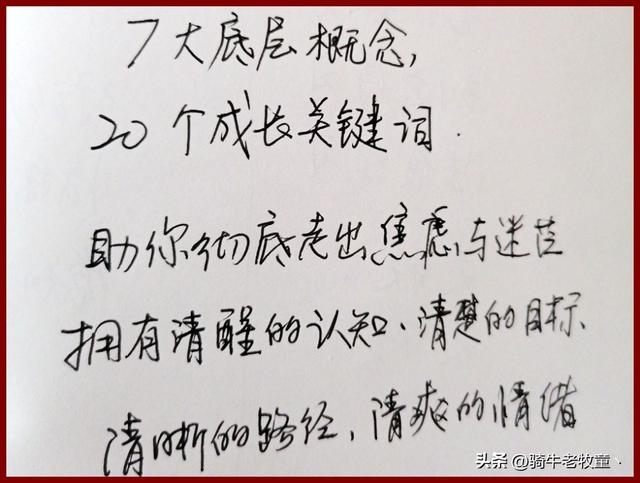 7大底层概念,
20个成长关键词.
助你彻底走出焦虑与迷茫
拥有清醒的认知、清楚的目标、
清晰的路经,清爽的情绪
头条@骑牛老牧童